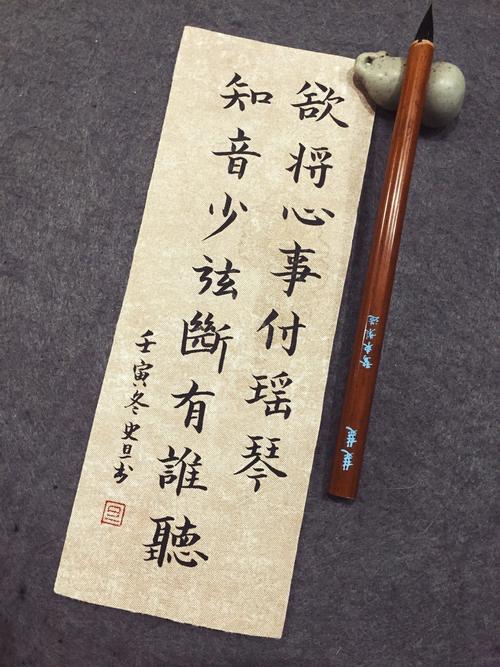 欲将心事付瑶琴
知音少弦斷有誰聽
壬寅冬史旦书